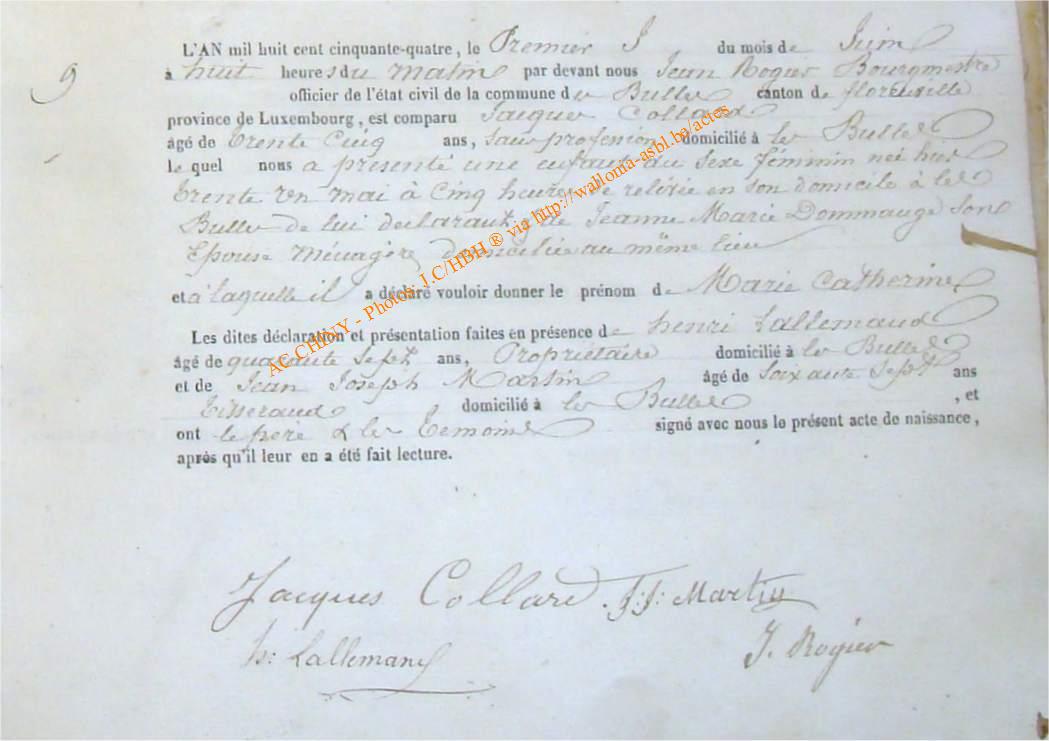 9
L'AN mil huit cent cinquante-quatre, le Premier J du mois de Juin
à huit heures du matin par devant nous Jean Rogier Bourgmestre
officier de l'état civil de la commune de les Bulles canton de florenville
province de Luxembourg, est comparu Jacques Collard
âgé de trente Cinq ans, Sans profession domicilié à les Bulles
le quel nous a présenté une enfant du Sexe féminin née hier
trente un mai à Cinq heures de relevée en son domicile à les
Bulles de lui déclarant et de Jeanne Marie Dommange Son
Epouse Ménagère domiciliée au même lieu
et à laquelle il a déclaré vouloir donner le prénom de Marie Catherine
Les dites déclaration et présentation faites en présence de henri Lallemand
âgé de quarante Sept ans, Propriétaire domicilié à les Bulles
et de Jean Joseph Martin âgé de Soixante Sept ans
Tisserand domicilié à les Bulles, et
ont le père & les temoins signé avec nous le présent acte de naissance,
après qu'il leur en a été fait lecture.
Jacques Collard J:J: Martin
h: Lallemand J. Rogier
AC CHINY - Photos: J.C/HBH ® via http://wallonia-asbl.be/actes